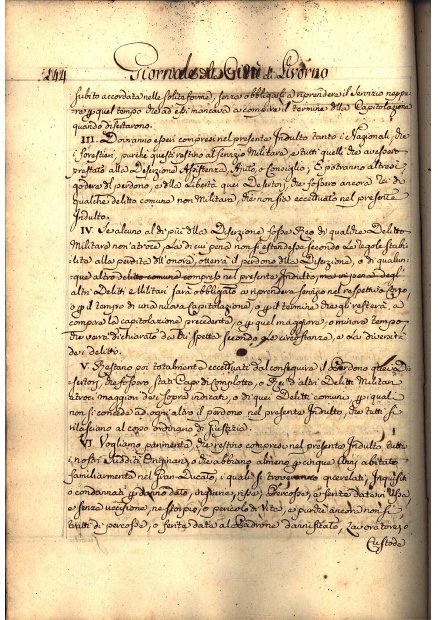 144 Giornale di Città e Livorno
subito accordata nelle solite forme, senza obbligarsi a riprendere il Servizio neppu-
re quel tempo che ad essi mancava a compire il termine della Capitolazione
quando disertarono.
III. Dovranno essere compresi nel presente Indulto tanto i Nazionali, che
i forestieri, purchè questi restino al servizio Militare, e tutti quelli che avessero
prestato alla Deserzione Assistenza, Ajuto, o Consiglio; E potranno altresì
godere di perdono, e della libertà quei Desertori, che fossero ancora rei di
qualche delitto comune non Militare che non sia eccettuato nel presente
Indulto.
IV. Se alcuno di più della Diserzione fosse Reo di qualche Delitto
Militare non atroce, la di cui pena non si estende secondo le regole stabi-
lite alla perdita dell'onore, otterrà il perdono della Diserzione, o di qualun-
que altro delitto comune compreso nel presente Indulto, ma in pena degli
altri Delitti Militari sarà obbligato a riprendere servizio nel respettivo Corpo,
o il tempo di una nuova Capitolazione, o il termine che gli resterà a
compire la capitolazione precedente, o quel maggiore, o minore tempo
che verrà dichiarato da chi spetta secondo le circostanze, e la diversità
dei delitti.
V. Restano poi totalmente eccettuati dal conseguire il Perdono quei Di-
sertori, che fossero stati Capi di Complotto, o Rei di altri Delitti Militari
atroci maggiori dei sopra indicati, o di quei Delitti comuni, quali
non si concede ad ogni altro il perdono nel presente Indulto, che tutti si
rilasciano al corso ordinario di Giustizia.
VI. Vogliamo parimente, che restino compresi nel presente Indulto tutti
i nostri Sudditi Originarj, o che abbiano almeno cinque Anni abitato
familiarmente nel Gran-Ducato, i quali si troveranno querelati, Inquisiti
o condannati danno dato, ingiurie, risse, Percosse, e ferite date in rissa,
e senza uccisione, ne storpio, o pericolo di Vita, e purchè ancora non si
tratti di percosse, o ferite date al Padrone dannificato, Lavoratore, o
Custode